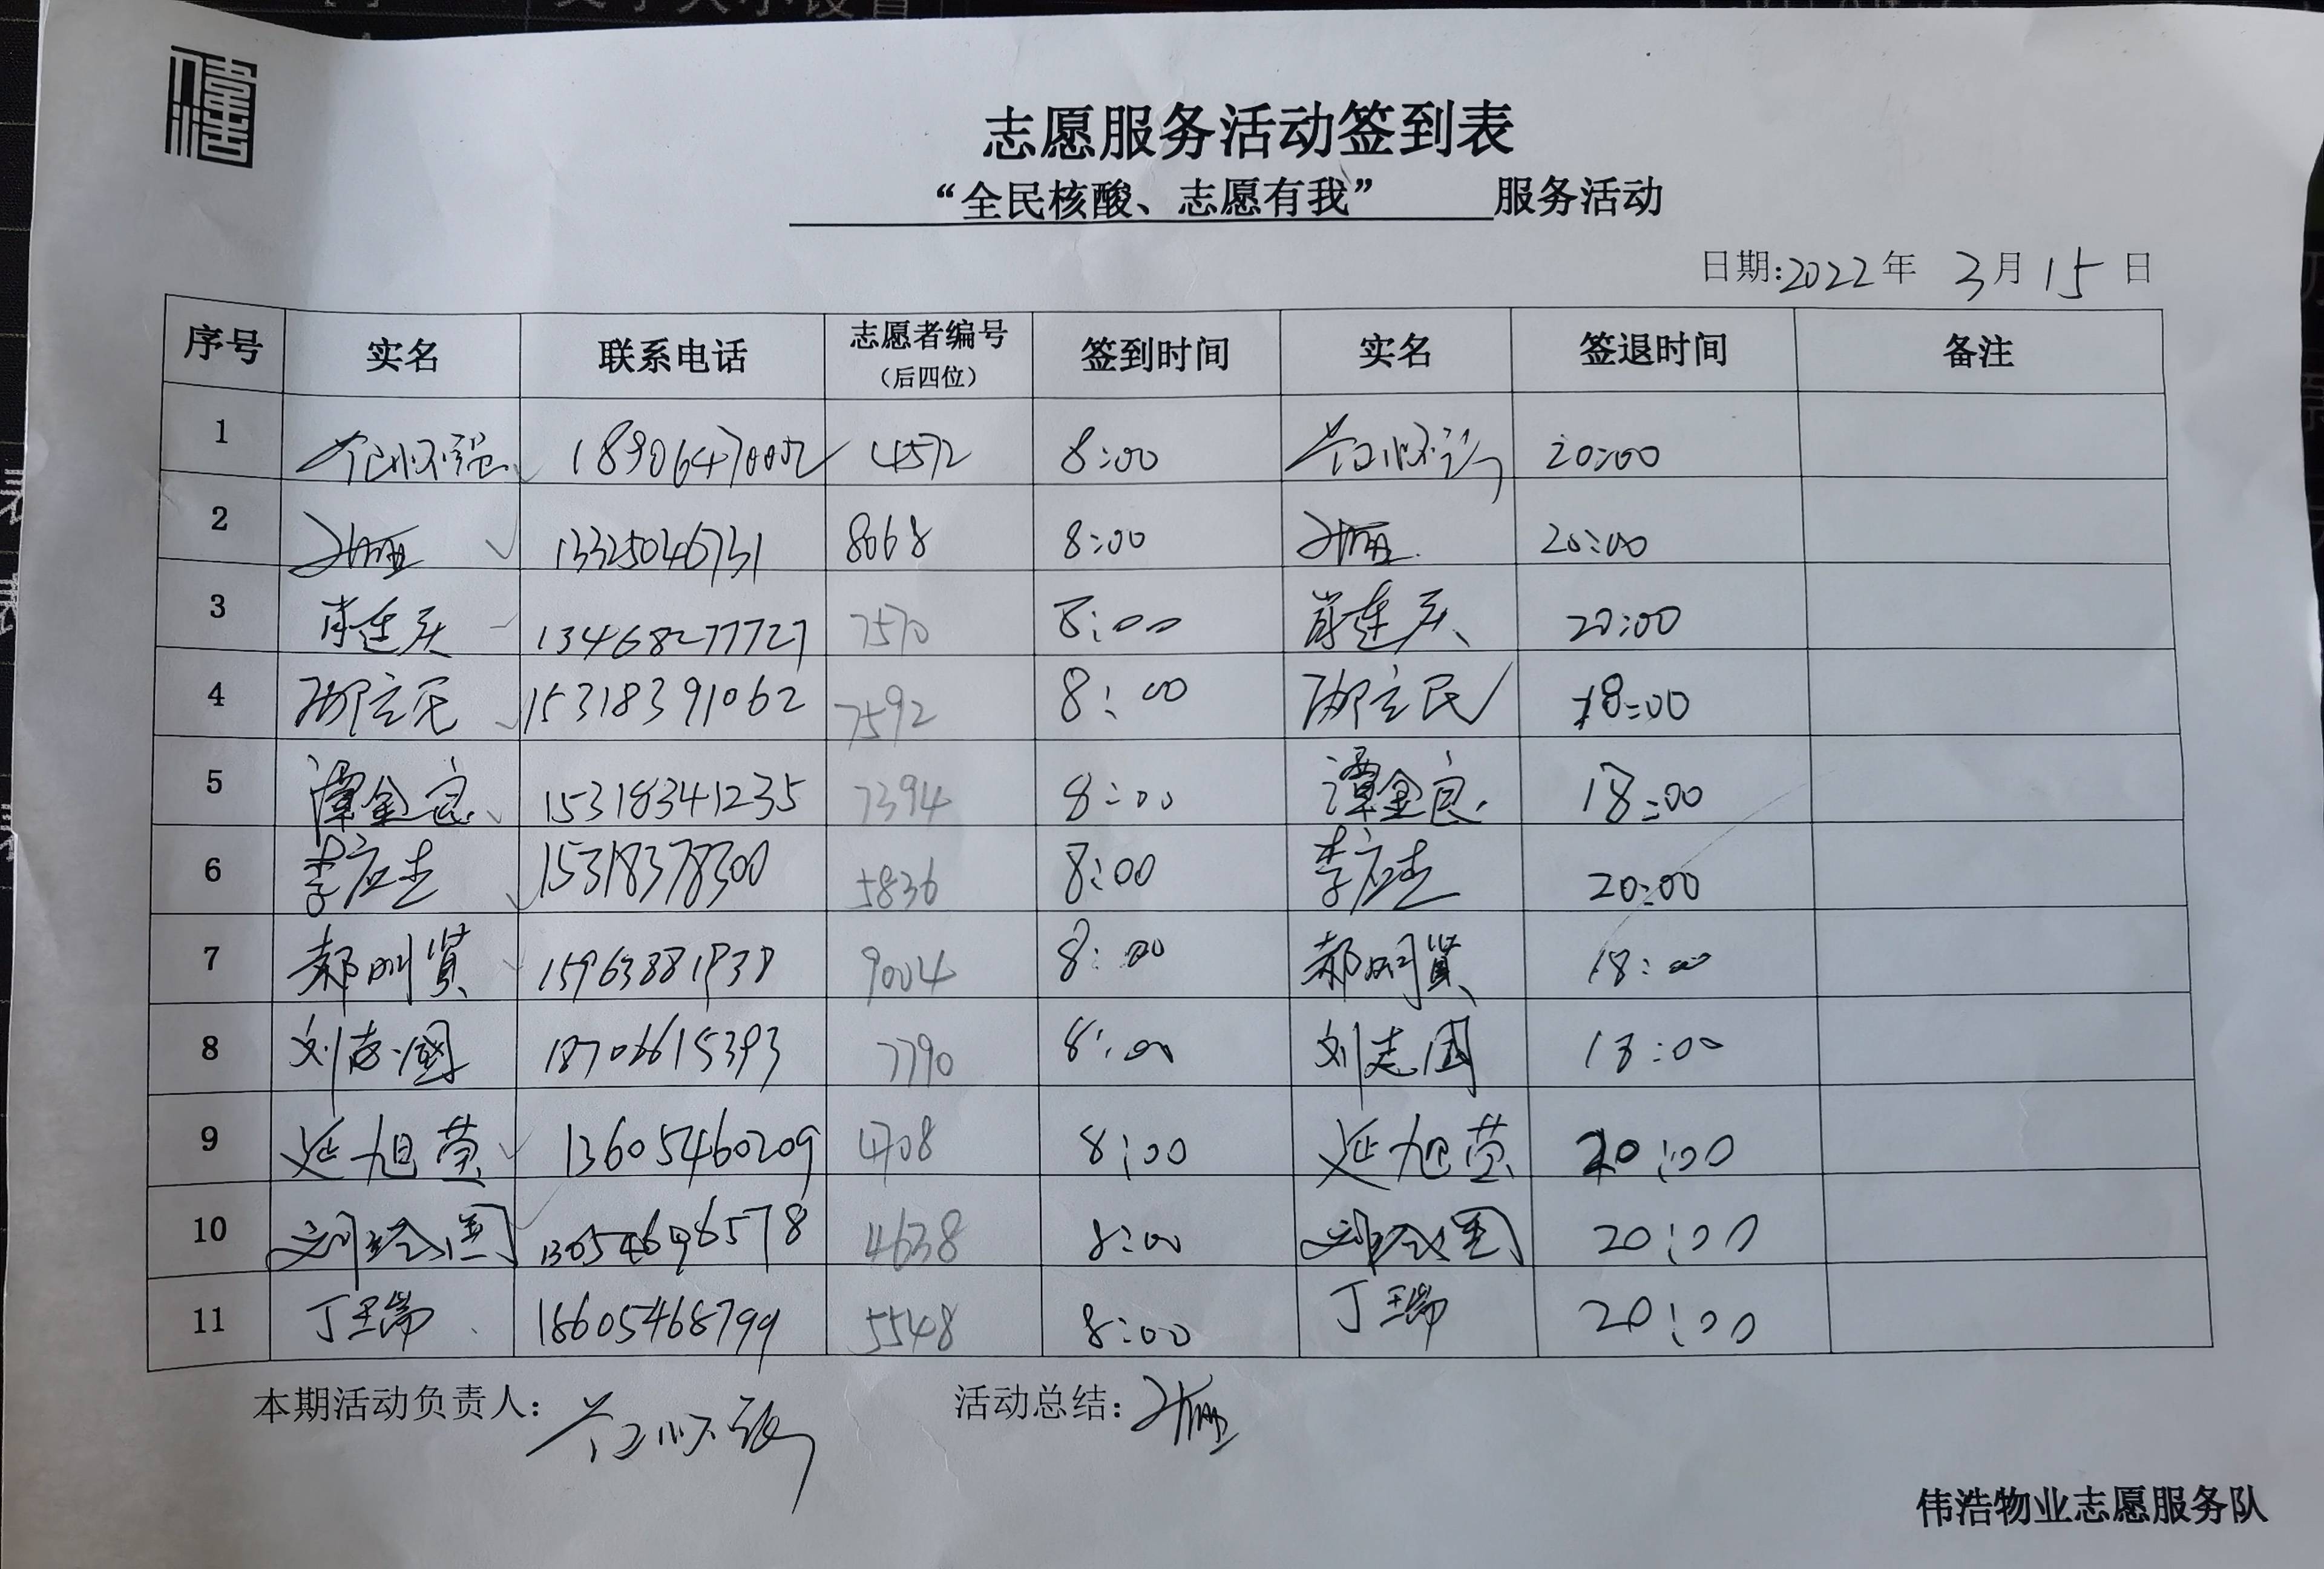 伟浩
志愿服务活动签到表
“全民核酸、志愿有我” 服务活动
日期:2022年 3月15日
序号 实名 联系电话 志愿者编号（后四位） 签到时间 实名 签退时间 备注
1 18906470002 4572 8:00 20:00
2 13325046731 8068 8:00 20:00
3 肖连庆 13468277727 7570 8:00 肖连庆 20:00
4 邵立民 15318391062 7592 8:00 邵立民 18:00
5 谭金良 15318341235 7394 8:00 谭金良 18:00
6 李应杰 15318378300 5836 8:00 李应杰 20:00
7 郝明贤 15963881938 9004 8:00 郝明贤 18:00
8 刘志国 18706615393 7790 8:00 刘志国 18:00
9 延旭莹 13605460209 4708 8:00 延旭莹 20:00
10 13054696578 4638 8:00 20:00
11 丁瑞 18605468799 5548 8:00 丁瑞 20:00
本期活动负责人: 活动总结:
伟浩物业志愿服务队